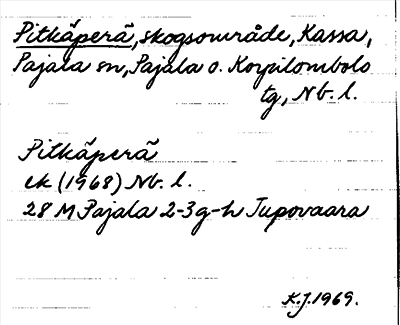 Pitkäperä, skogsområde, Kassa,
Pajala sn, Pajala o. Korpilombolo
tg, Nb. l.
Pitkäperä
ek (1968) Nb. l.
28 M Pajala 2-3 g-h Jupovaara
K.J. 1969.